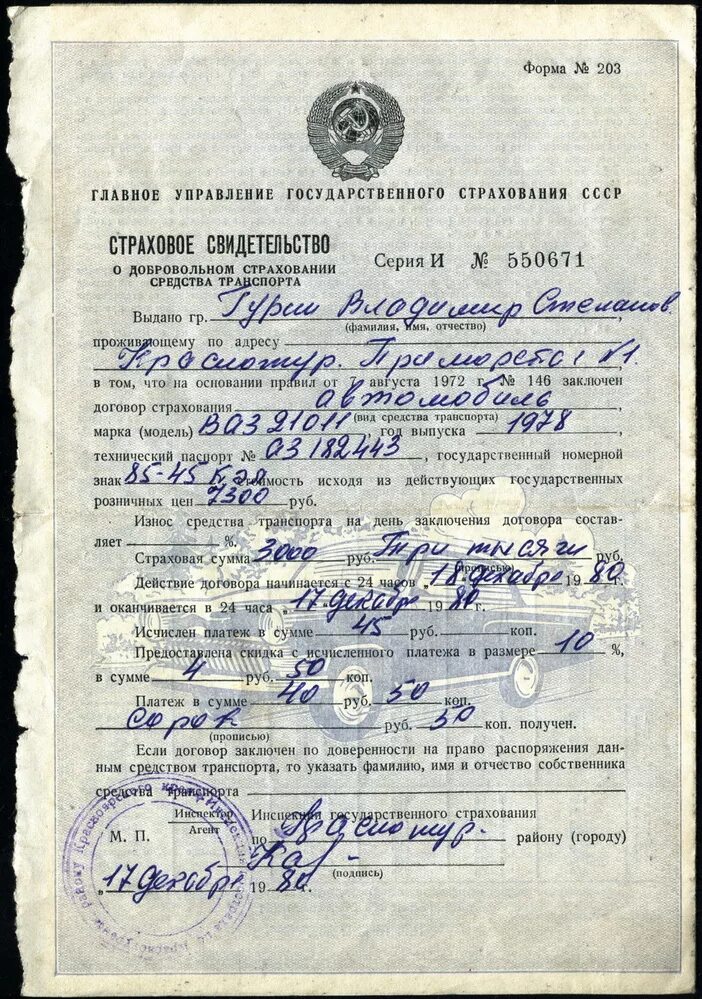 Форма № 203
ГЛАВНОЕ УПРАВЛЕНИЕ ГОСУДАРСТВЕННОГО СТРАХОВАНИЯ СССР
СТРАХОВОЕ СВИДЕТЕЛЬСТВО
О ДОБРОВОЛЬНОМ СТРАХОВАНИИ
СРЕДСТВА ТРАНСПОРТА
Серия И № 550671
Выдано гр. Гурин Владимир Степанов.
(фамилия, имя, отчество)
проживающему по адресу
Краснотур. №1.
в том, что на основании правил от 7 августа 1972 г. № 146 заключен
договор страхования автомобиль,
(вид средства транспорта)
марка (модель) ВАЗ 21011, год выпуска 1978,
технический паспорт № АЗ 182443, государственный номерной
знак 85-45 стоимость исходя из действующих государственных
розничных цен 7300 руб.
Износ средства транспорта на день заключения договора состав-
ляет %.
Страховая сумма 3000 руб. Три тысячи руб.
(прописью)
Действие договора начинается с 24 часов „18 декабря 1980 г.
и оканчивается в 24 часа „17 декабря 19 г.
Исчислен платеж в сумме 45 руб. коп.
Предоставлена скидка с исчисленного платежа в размере 10 %,
в сумме 4 руб. 50 коп.
Платеж в сумме 40 руб. 50 коп.
Сорок руб. 50 коп. получен.
(прописью)
Если договор заключен по доверенности на право распоряжения дан-
ным средством транспорта, то указать фамилию, имя и отчество собственника
средства транспорта
Инспектор
Агент
Инспекции государственного страхования
М. П.
по Краснотур. району (городу)
(подпись)
„17 декабря 1980.
району Красноярского края